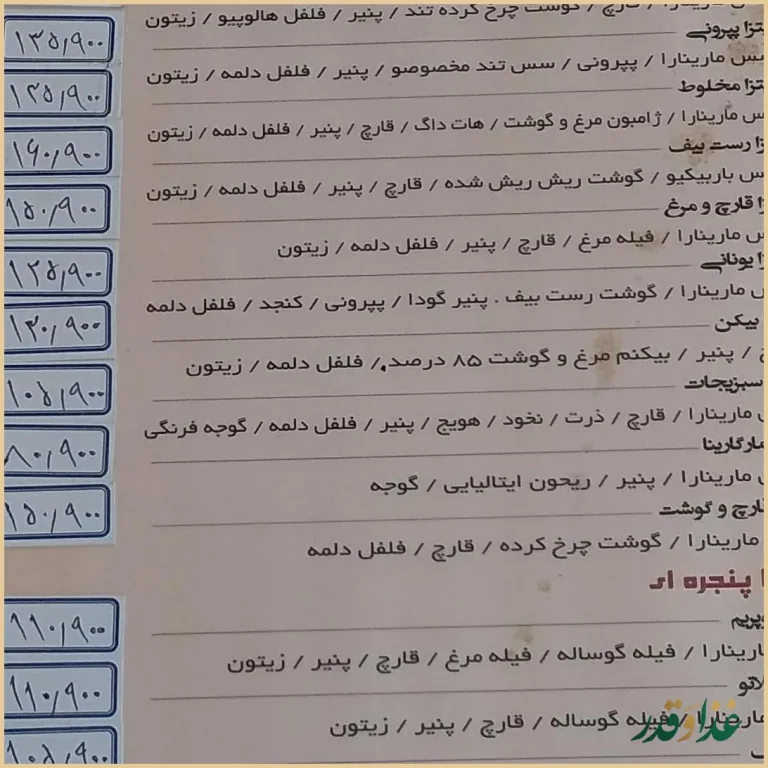 مارینارا / قارچ / گوشت چرخ کرده تند / پنیر / فلفل هالوپیو / زیتون
۱۳۵٫۹۰۰
پیتزا پپرونی
سس مارینارا / پپرونی / سس تند مخصوصو / پنیر / فلفل دلمه / زیتون
۱۲۵٫۹۰۰
پیتزا مخلوط
سس مارینارا / ژامبون مرغ و گوشت / هات داگ / قارچ / پنیر / فلفل دلمه / زیتون
۱۶۰٫۹۰۰
رست بیف
سس باربیکیو / گوشت ریش ریش شده / قارچ / پنیر / فلفل دلمه / زیتون
۱۵۰٫۹۰۰
قارچ و مرغ
مارینارا / فیله مرغ / قارچ / پنیر / فلفل دلمه / زیتون
۱۲۵٫۹۰۰
یونانی
مارینارا / گوشت رست بیف . پنیر گودا / پپرونی / کنجد / فلفل دلمه
۱۳۰٫۹۰۰
بیکن
/ پنیر / بیکنم مرغ و گوشت ۸۵ درصد / فلفل دلمه / زیتون
۱۰۵٫۹۰۰
سبزیجات
مارینارا / قارچ / ذرت / نخود / هویج / پنیر / فلفل دلمه / گوجه فرنگی
۸۰٫۹۰۰
مارگارینا
مارینارا / پنیر / ریحون ایتالیایی / گوجه
۱۵۰٫۹۰۰
قارچ و گوشت
مارینارا / گوشت چرخ کرده / قارچ / فلفل دلمه
پنجره ای
۱۱۰٫۹۰۰
مارینارا / فیله گوساله / فیله مرغ / قارچ / پنیر / زیتون
۱۱۰٫۹۰۰
مارینارا / فیله گوساله / قارچ / پنیر / زیتون
۱۰۵٫۹۰۰
غذا و قدر